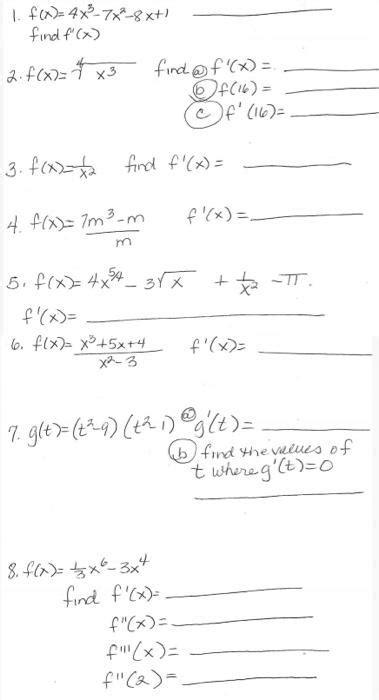 1. f(x) = 4x³-7x²-8x+1 ________
find f'(x)
2. f(x) = ∜x³ find ⓐ f'(x) = ________
ⓑ f(16) = ________
ⓒ f'(16) = ________
3. f(x) = 1/x² find f'(x) = ________
4. f(x) = (7m³-m)/m f'(x) = ________
5. f(x) = 4x^(5/4) - 3√x + 1/x² - π.
f'(x) = ________
6. f(x) = (x³+5x+4)/(x²-3) f'(x) = ________
7. g(t) = (t²-9)(t²-1) ⓐ g'(t) = ________
ⓑ find the values of
t where g'(t) = 0
________
8. f(x) = 1/3 x⁶ - 3x⁴
find f'(x) = ________
f''(x) = ________
f'''(x) = ________
f''(2) = ________